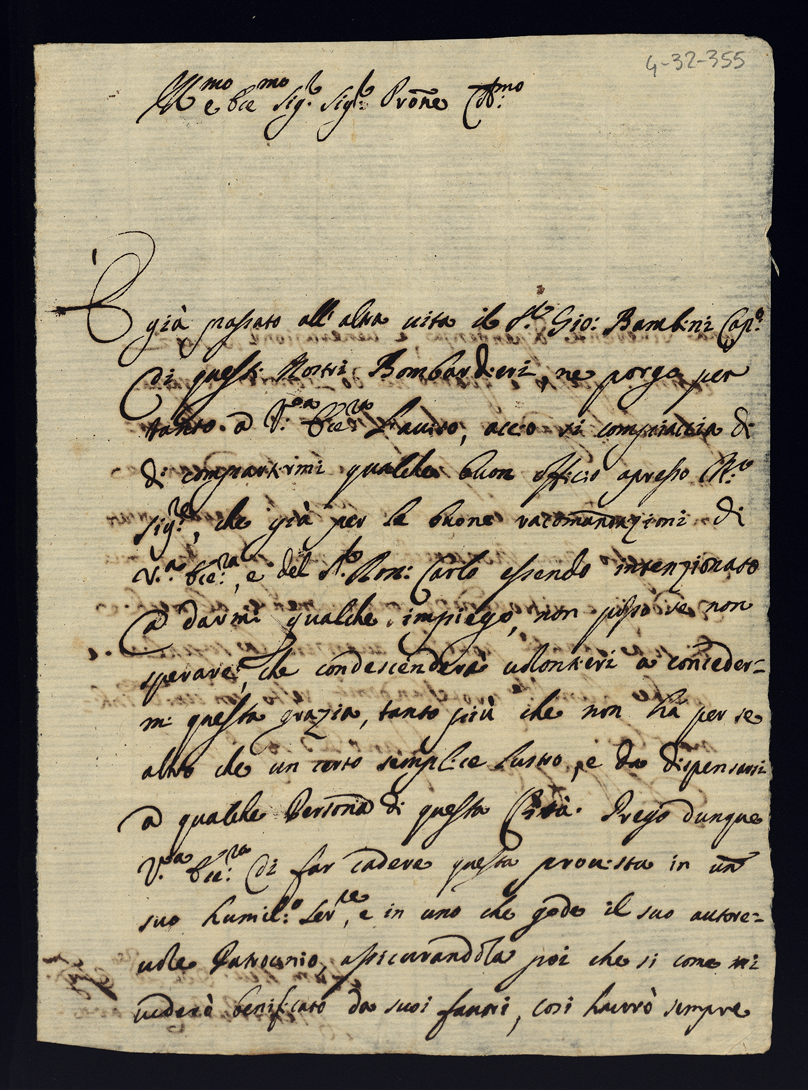 4-32-355
Ill.mo e Ecc.mo Sig.r Sig.r Prone Col.mo
È già passato all'altra vita il S.r Gio: Bambini Cap.o
di questi Nostri Bombardieri, ne porgo per
tanto a V.a Ecc.za l'auiso, acciò si compiaccia di
di compartirmi qualche buon officio apresso
Sig.re, che già per le buone racomandazioni di
V.a Ecc.za, e del S.r Carlo essendo intenzionato
a darmi qualche impiego, non posso se non
sperare, che condescenderà uolontieri a conceder=
mi questa grazia, tanto più che non hà per se
altro che un certo semplice lustro, e da dispensarsi
a qualche Persona di questa Città. Prego dunque
V.a Ecc.za di far cadere questa prouista in un
suo humil.o Ser.re, e in uno che gode il suo autore=
uole Patrocinio, assicurandola poi che si come mi
uederò benificato da suoi fauori, così haurò sempre